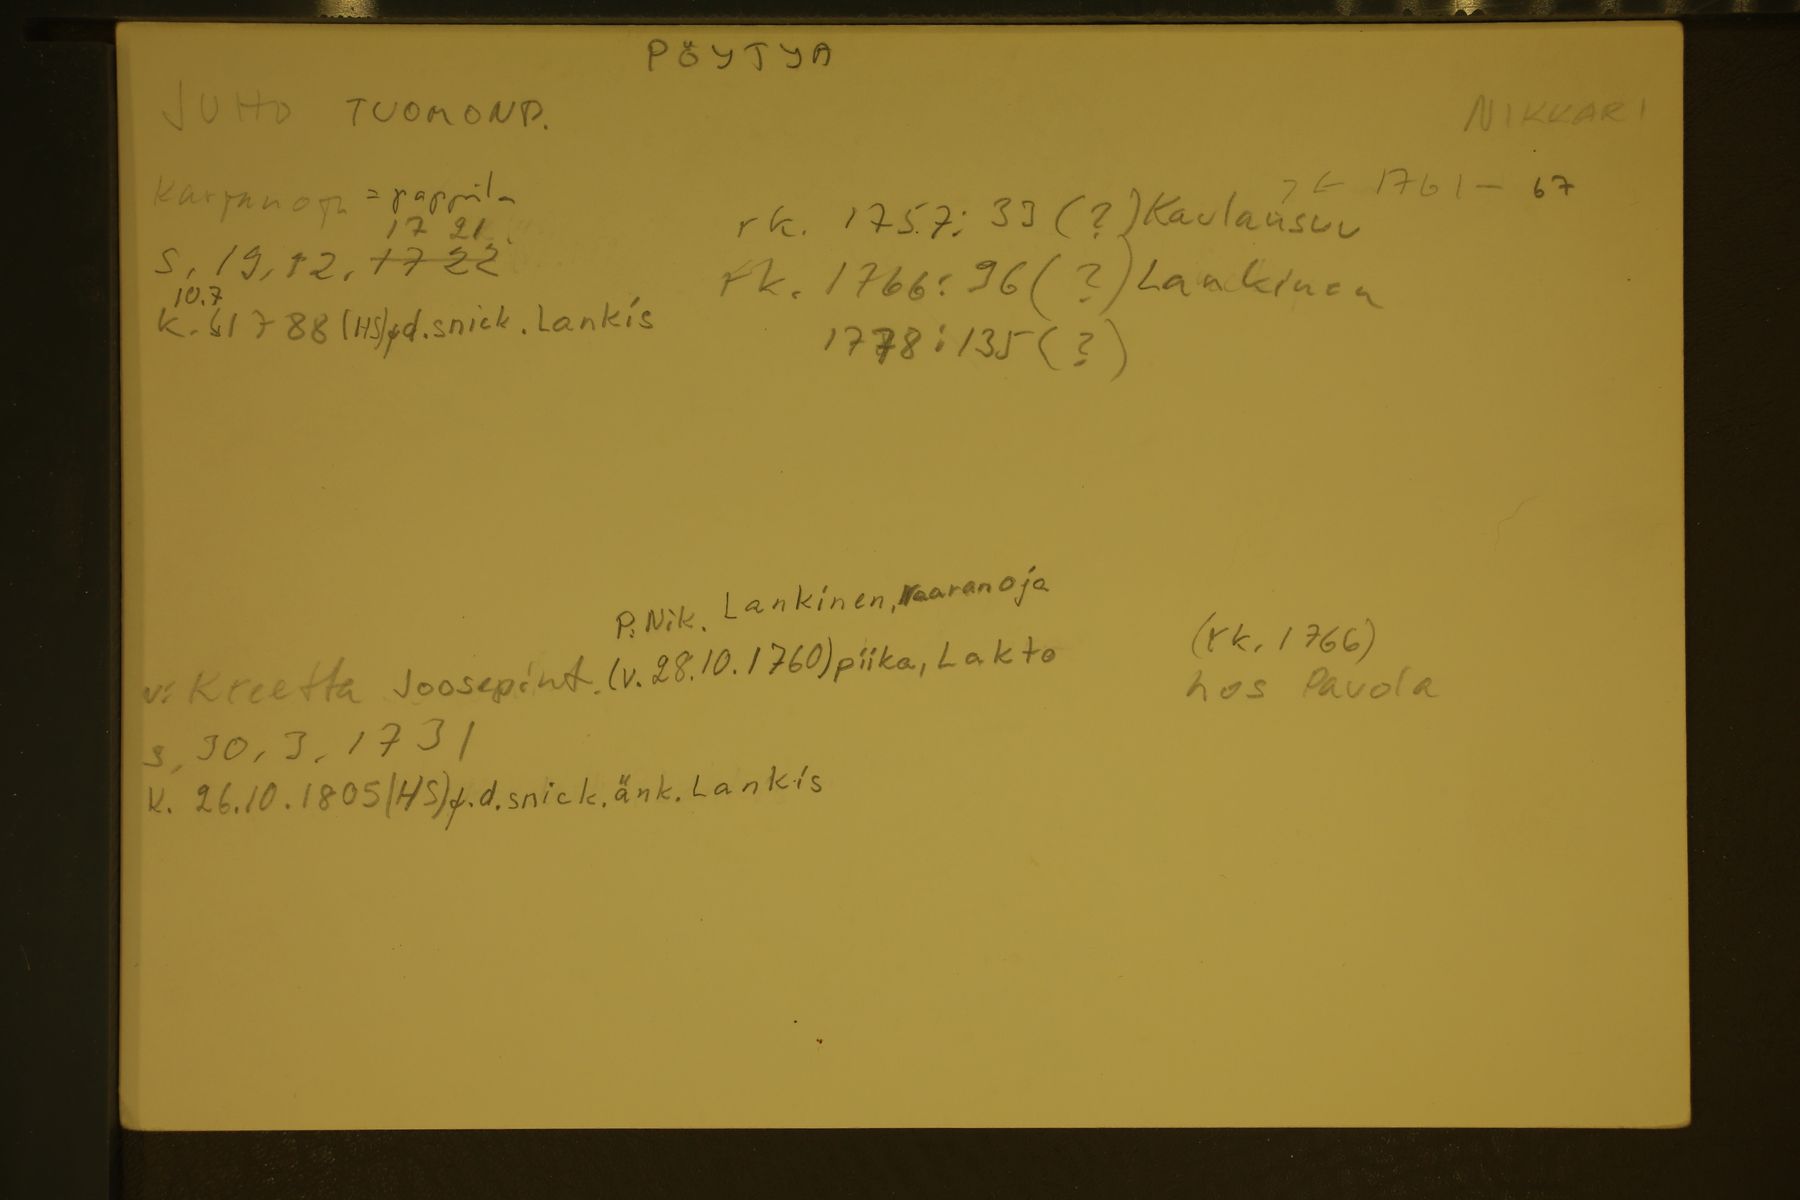 PÖYTYÄ
JUHO TUOMONP. NIKKARI
Karjanoja = pappila
→ ← 1761 - 67
17 21.
rk. 1757: 33 (?) Kaulansuu
s. 19.12. 1722
rk. 1766: 96 (?) Lankinen
10.7
k. 1788 (HS) f.d. snick. Lankis
1778: 135 (?)
P: Nik. Lankinen, Vaaranoja
(rk. 1766)
v: Kreetta Joosepint. (v. 28.10.1760) piika, Lakto
hos Pavola
s. 30.3.1731
k. 26.10.1805 (HS) f.d. snick. änk. Lankis